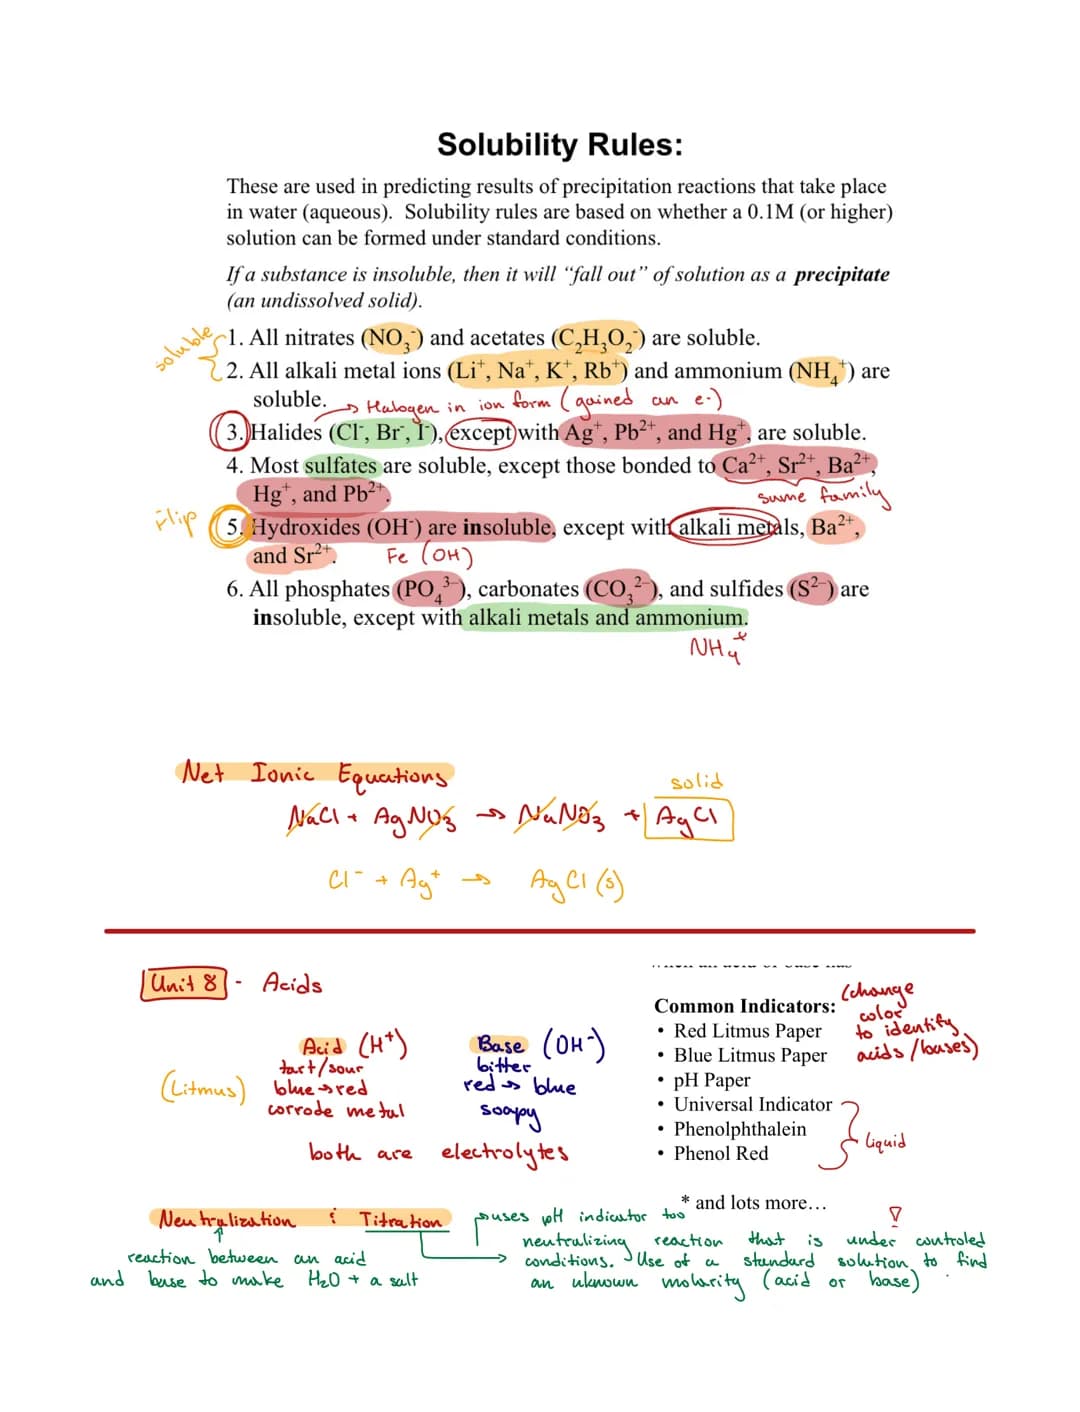 Solubility Rules:
These are used in predicting results of precipitation reactions that take place
in water (aqueous). Solubility rules are based on whether a 0.1M (or higher)
solution can be formed under standard conditions.
If a substance is insoluble, then it will “fall out” of solution as a precipitate
(an undissolved solid).
soluble
1. All nitrates (NO₃⁻) and acetates (C₂H₃O₂⁻) are soluble.
2. All alkali metal ions (Li⁺, Na⁺, K⁺, Rb⁺) and ammonium (NH₄⁺) are
soluble.
→ Halogen in ion form (gained an e-)
3. Halides (Cl⁻, Br⁻, I⁻), except with Ag⁺, Pb²⁺, and Hg⁺, are soluble.
4. Most sulfates are soluble, except those bonded to Ca²⁺, Sr²⁺, Ba²⁺,
Hg⁺, and Pb²⁺.
same family
flip
5. Hydroxides (OH⁻) are insoluble, except with alkali metals, Ba²⁺,
and Sr²⁺.
Fe (OH)
6. All phosphates (PO₄³⁻), carbonates (CO₃²⁻), and sulfides (S²⁻) are
insoluble, except with alkali metals and ammonium.
NH₄⁺
Net Ionic Equations
solid
NaCl + AgNO₃ → NaNO₃ + AgCl
Cl⁻ + Ag⁺ → AgCl (s)
Unit 8 - Acids
Acid (H⁺)
tart/sour
(Litmus)
blue → red
corrode metal
Base (OH⁻)
bitter
red → blue
soapy
both are electrolytes
Common Indicators:
(change
color
to identify
acids/bases)
• Red Litmus Paper
• Blue Litmus Paper
• pH Paper
• Universal Indicator
• Phenolphthalein
• Phenol Red
liquid
* and lots more…
Neutralization & Titration
reaction between an acid
and base to make H₂O + a salt
uses pH indicator too
neutralizing reaction that is under controled
conditions. Use of a standard solution to find
an uknown molarity (acid or base)